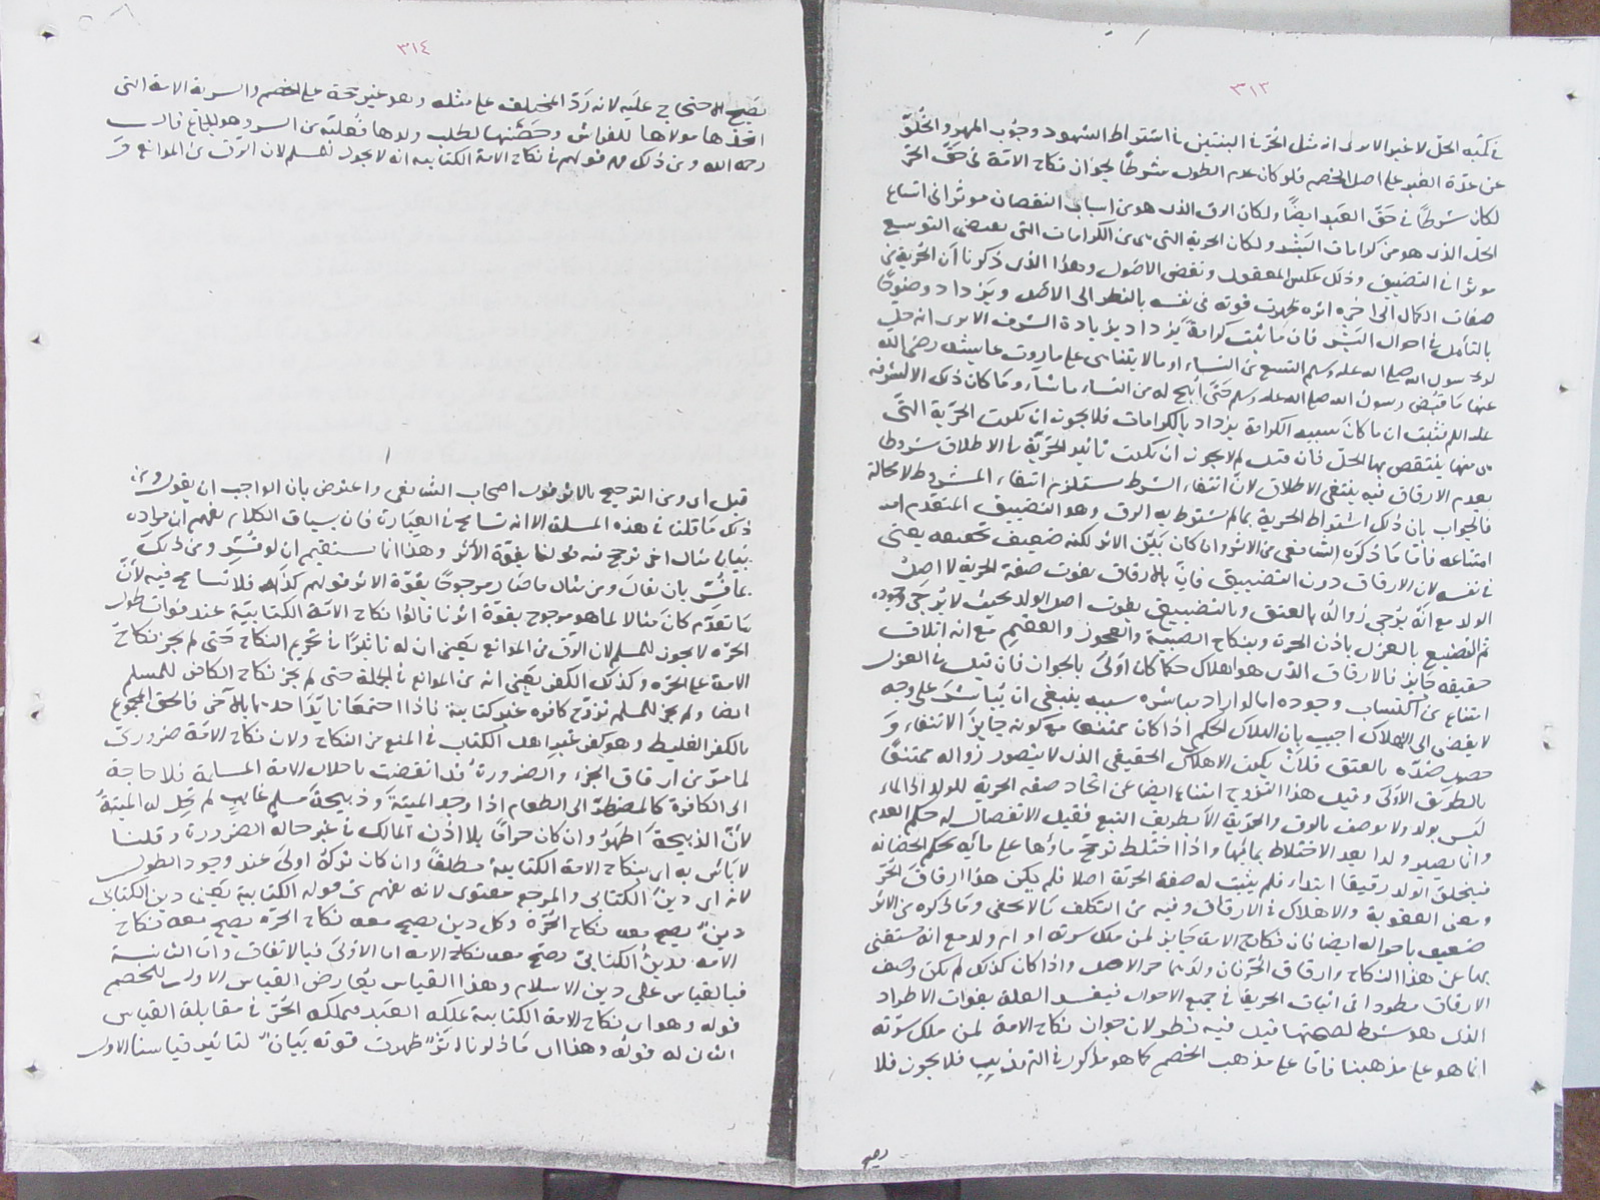 ٣١٣
في كتبه الحل لا غير الا يرى انه مثل الحر في البنتين في اشتراط الشهود وجوب المهر والخلو
عن عدة الغير على اصل الخصم فلو كان عدم الطول شرطا لجواز نكاح الامة في حق الحر
لكان شرطا في حق العبد ايضا ولكان الرق الذي هو من اسباب النقصان موثرا في اتساع
الحل الذي هو من كرامات البشر ولكان الحرية التي هي من الكرامات التي يقتضي التوسيع
موثرا في التضييق وذلك عكس المعقول ونقض الاصول وهذا الذي ذكرنا ان الحرية من
صفات الكمال الى اخره اثره ظهرت قوته في نفسه بالنظر الى الاصل ويزداد وضوحا
بالتأمل في احوال البشر فان ما يثبت كرامة يزداد بزيادة الشرف الا يرى انه حل
لرسول الله صلى الله عليه وسلم التسع من النساء او ما لا يتناهى على ما روت عايشه رضى الله
عنها ما قبض رسول الله صلى الله عليه وسلم حتى ابيح له من النساء ما شاء وما كان ذلك الا لشرفه
عليه السلم فثبت ان ما كان سببه الكرامة يزداد بالكرامات فلا يجوز ان يكون الحرية التي
هي منها ينتقص بها الحل فان قيل لم لا يجوز ان يكون تاثير الحرية في الاطلاق شروطا
بعدم الارقاق فيه ينتفي الاطلاق لان انتفاء الشرط يستلزم انتفاء المشروط لا محالة
فالجواب بان ذلك اشتراط الحرية بما لم يشترط به الرق وهو التضييق المتقدم
امتناعه فاما ما ذكره الشافعي من الاثر وان كان بين الاثر لكنه ضعيف بحقيقه يعنى
في نفسه لان الارقاق دون التضييع فان بالارقاق يفوت صفة الحرية لا اصل
الولد مع انه يرجى زواله بالعتق وبالتضييع يفوت اصل الولد بحيث لا يرجى وجوده
ثم التضييع بالعزل باذن الحرة وبنكاح الصبية والعجوز والعقيم مع انه اتلاف
حقيقه جايز فالارقاق الذي هو اهلاك حكما كان اولى بالجواز فان قيل في العزل
امتناع من اكتساب وجوده اما لو اراد مباشره سببه ينبغي ان يباشر على وجه
لا يفضى الى الهلاك اجيب بان الهلاك الحكمي اذا كان ممتنعا مع كونه جايز الانتفاء و
حصول ضده بالعتق فلان يكون الاهلاك الحقيقي الذي لا يتصور زواله ممتنعا
بالطريق الاولى وقيل هذا التزوج امتناع ايضا عن اتحاد صفه الحرية للولد اذ الماء
ليس بولد ولا يوصف بالرق والحرية الا بطريق التبع فقبل الانفصال له حكم العدم
وانما يصير ولدا بعد الاختلاط بمائها واذا اختلط ترجح ماؤها على مائه بحكم الحضانه
فيتخلق الولد رقيقا ابتداء فلم يثبت له صفة الحرية اصلا فلم يكن هذا ارقاق الحر
ومعنى العقوبة والاهلاك في الارقاق وفيه من التكلف ما لا يخفى وما ذكره من الاثر
ضعيف باحواله ايضا فان نكاح الامة جايز لمن ملك سرته او ام ولد مع انه يستغنى
بها عن هذا النكاح وارقاق الحر فان ولديهما حر الاصل واذا كان كذلك لم يكن وصف
الارقاق مطردا في اثبات الحرية في جميع الاحوال فيفسد العلة بفوات الاطراد
الذي هو شرط لصحتها قيل فيه نظر لان جواز نكاح الامة لمن ملك سرته
انما هو على مذهبنا فاما على مذهب الخصم كما هو مذكور في التهذيب فلا يجوز فلا
يصح
٣١٤
يصح الاحتجاج عليه لانه رد المختلف على مثله وهو غير حجة على الخصم والسرية الامة التى
اتخذها مولاها للفراش وحصنها لطلب ولدها فعليه من السر وهو الجماع قال
رحمه الله ومن ذلك من قولهم في نكاح الامة الكتابيه انه لا يجوز للمسلم لان الرق من الموانع
قيل اى ومن الترجيح بالاثر قول اصحاب الشافعي واعترض بان الواجب ان يقول ومن
ذلك ما قلنا في هذه المسلة الا انه تسامح في العبارة فان سياق الكلام يفهم ان مراده
بيان مثال اخر ترجح فيه قولنا بقوة الاثر وهذا انما يستقيم ان لو فسر ومن ذلك
بما فسر بان يقال ومن مثال ما صار مرجوحا بقوة الاثر قولهم كذا فلا تسامح فيه لان
ما تقدم كان مثالا لما هو مرجوح بقوة اثرنا قالوا نكاح الامة الكتابية عند فوات طول
الحرة لا يجوز للمسلم لان الرق من الموانع يعنى ان له تاثيرا في تحريم النكاح حتى لم يجز نكاح
الامة على الحره وكذلك الكفر يعنى انه من الموانع في الجملة حتى لم يجز نكاح الكافر للمسلم
ايضا ولم يجز للمسلم تزوج كافره غير كتابية فاذا اجتمعا تايد احدهما بالآخر فالحق المجموع
بالكفر الغليظ وهو كفر غير اهل الكتاب في المنع من النكاح ولان نكاح الامة ضرورى
لما مر من ارقاق الجزء والضرورة قد انقضت باحلال الامة المسلمة فلا حاجة
الى الكافرة كالمضطر الى الطعام اذا وجد الميتة وذبيحة مسلم غايب لم تحل له الميتة
لان الذبيحة اطهر وان كان حراما بلا اذن المالك في غير حالة الضرورة وقلنا
لا باس به اى بنكاح الامة الكتابية مطلقا وان كان تركه اولى عند وجود الطول
لانه اى دين الكتابي والمرجع معنوى لانه يفهم من قوله الكتابية يعنى دين الكتابي
دين يصح معه نكاح الحرة وكل دين يصح معه نكاح الحره يصح معه نكاح
الامه فدين الكتابي يصح معه نكاح الامه اما الاولى فبالاتفاق واما الثانية
فبالقياس على دين الاسلام وهذا القياس يعارض القياس الاول للخصم
قوله وهو ان نكاح الامة الكتابية يملكه العبد فيملكه الحر في مقابلة القياس
الثانى له قوله وهذا اى ما ذكرنا اثر ظهرت قوته بيان لتاثير قياسنا الاول